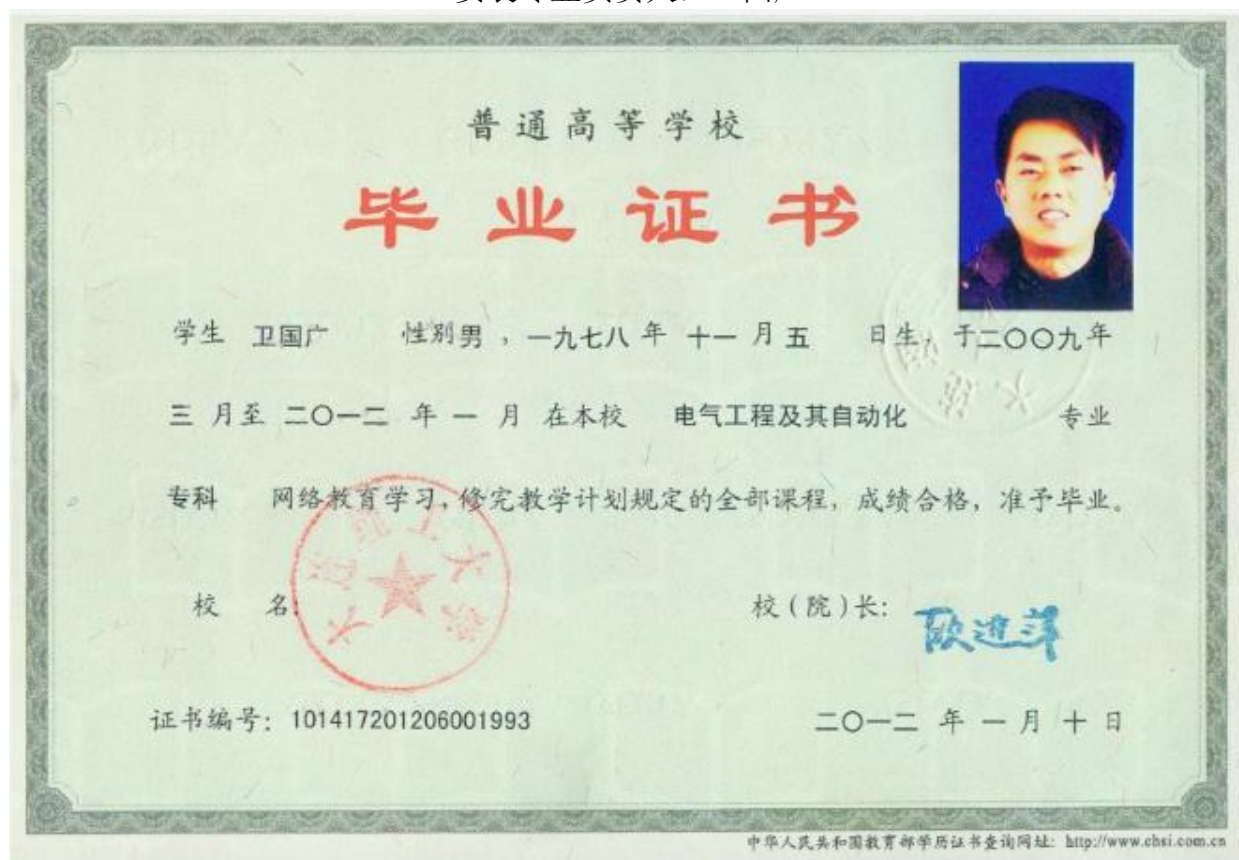 普通高等学校
毕业证书
学生 卫国广 性别男，一九七八年 十一 月 五 日生，于二〇〇九年
三 月至 二〇一二 年 一 月 在本校 电气工程及其自动化 专业
专科 网络教育学习，修完教学计划规定的全部课程，成绩合格，准予毕业。
校 名：
大连理工大学
校（院）长：
欧进萍
证书编号：101417201206001993
二〇一二 年 一 月 十 日
中华人民共和国教育部学历证书查询网址：http://www.chsi.com.cn